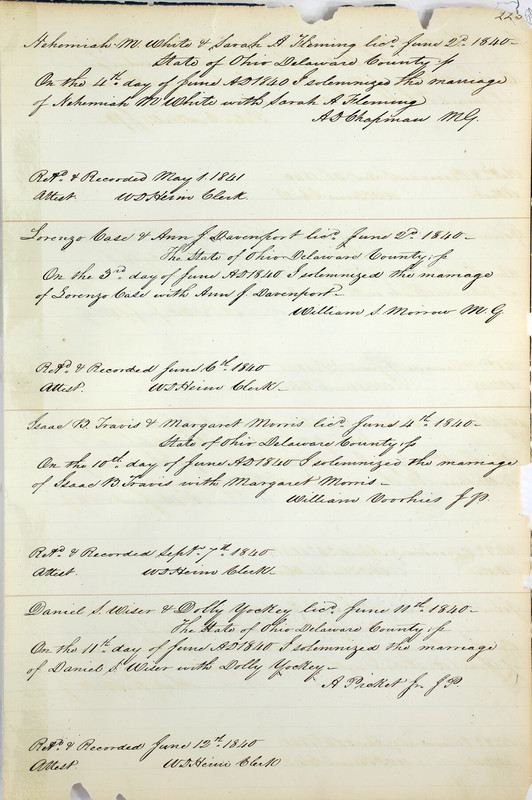 223
Nehemiah M. White & Sarah A Fleming licd. June 2d. 1840-
State of Ohio Delaware County ss
On the 4th. day of June AD 1840 I solemnized the marriage
of Nehemiah M White with Sarah A Fleming
A D Chapman M.G.
Retd. & Recorded May 1. 1841
Attest. W D Heim Clerk.
Lorenzo Case & Ann J. Davenport licd. June 2d. 1840-
The State of Ohio Delaware County, ss
On the 3rd. day of June AD 1840 I solemnized the marriage
of Lorenzo Case with Ann J. Davenport-
William S. Morrow M.G
Retd. & Recorded June 6th. 1840
Attest. W D Heim Clerk-
Isaac B. Travis & Margaret Morris licd. June 4th. 1840-
State of Ohio Delaware County ss
On the 10th. day of June AD 1840 I solemnized the marriage
of Isaac B Travis with Margaret Morris-
William Voorhies J.P.
Retd. & Recorded Sept. 7th. 1840
Attest. W D Heim Clerk-
Daniel S. Wiser & Dolly Yockey licd. June 11th. 1840-
The State of Ohio Delaware County, ss
On the 11th. day of June AD 1840 I solemnized the marriage
of Daniel S. Wiser with Dolly Yockey-
A Picket Jr. J.P.
Retd. & Recorded June 12th. 1840
Attest. W D Heim Clerk